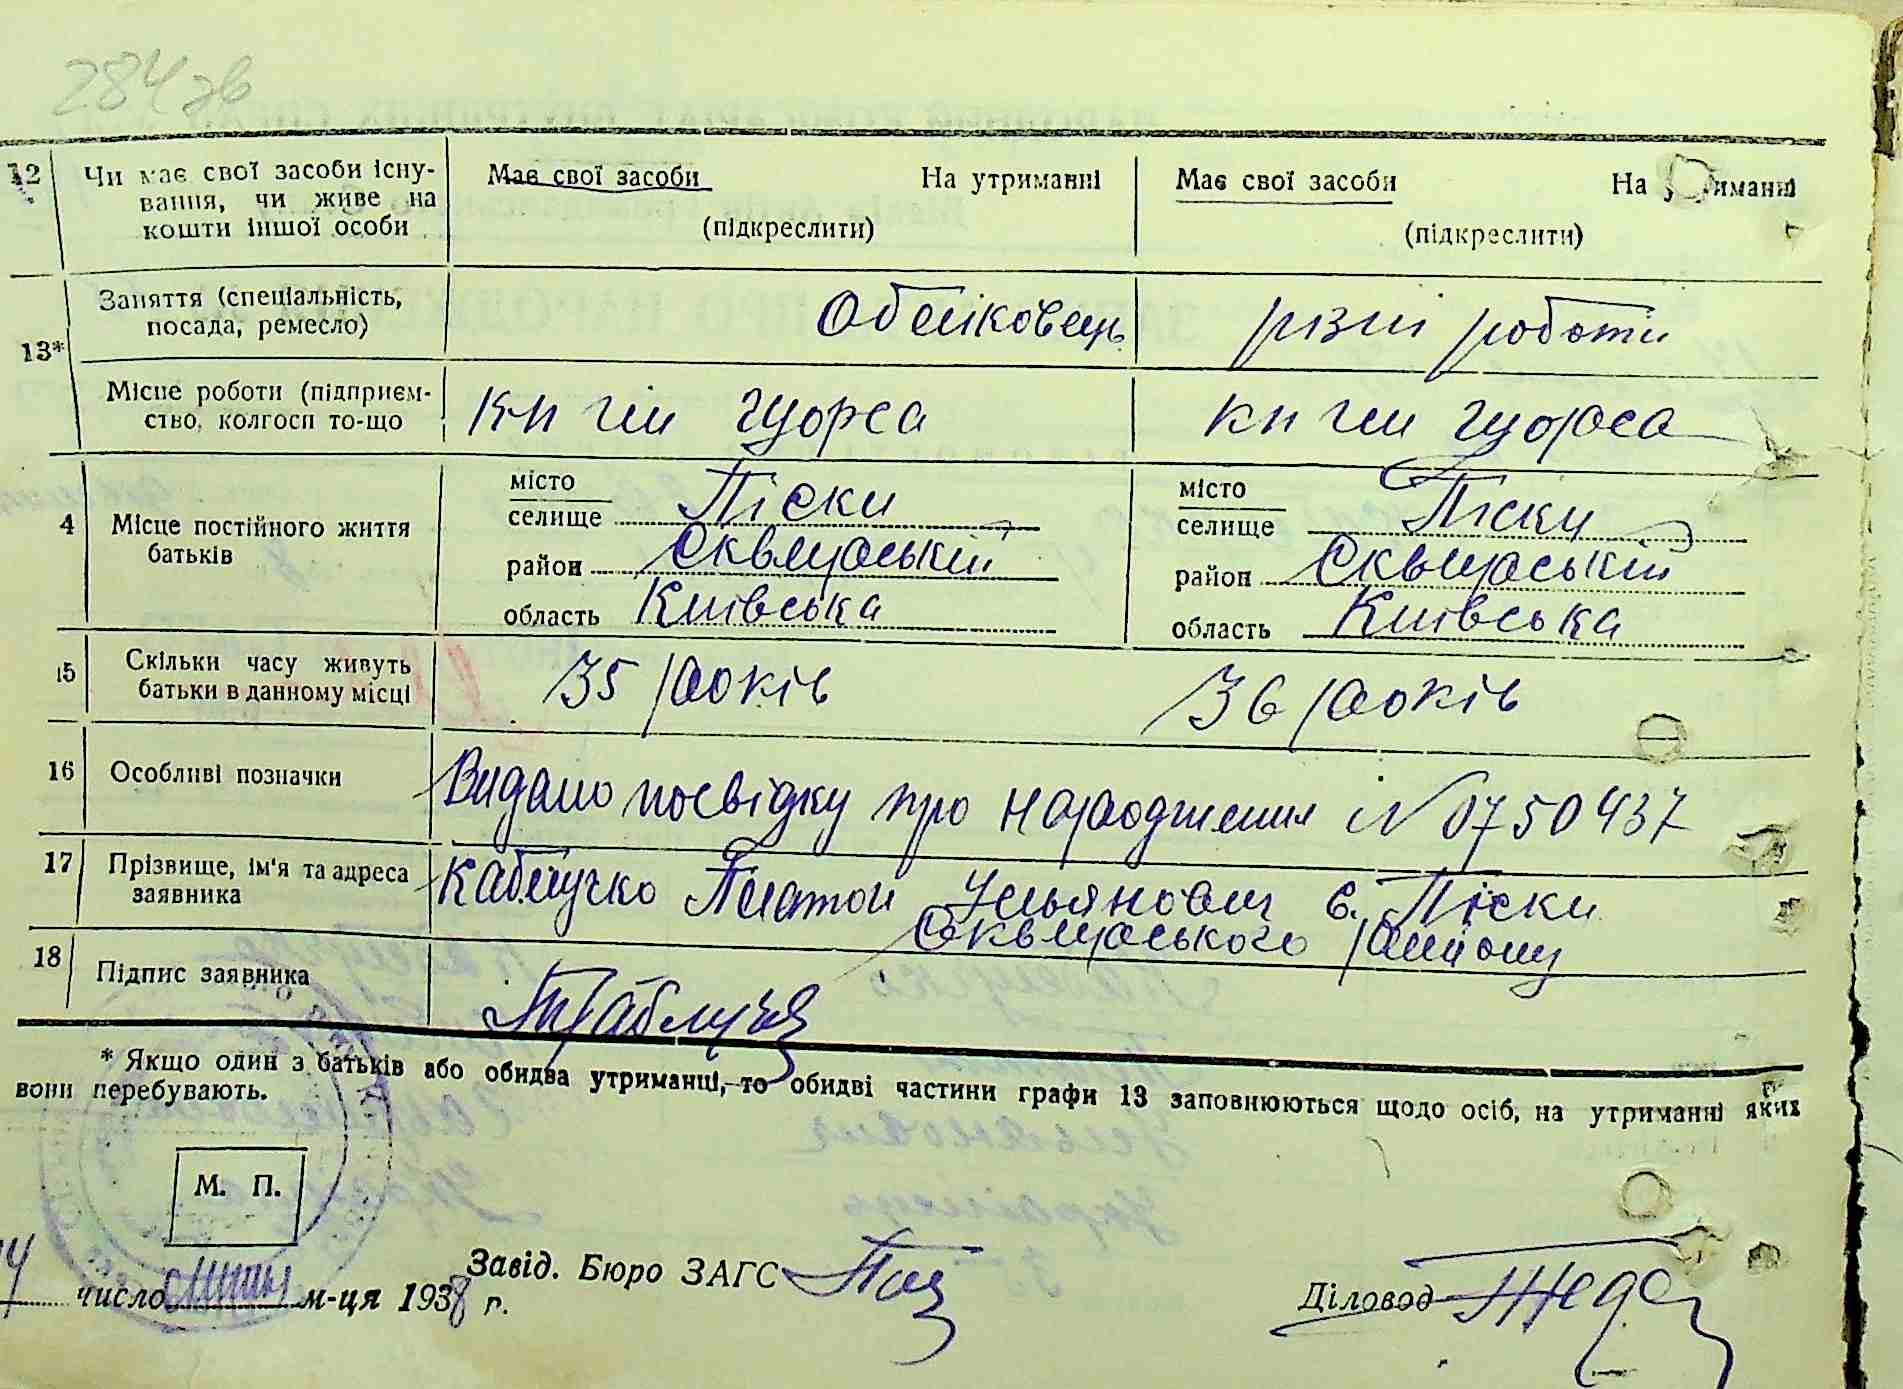 284 зв
12 Чи має свої засоби існу- Має свої засоби На утриманні Має свої засоби На у риманні
вання, чи живе на
кошти іншої особи (підкреслити) (підкреслити)
Заняття (спеціальність, різні роботи
посада, ремесло)
13*
Місце роботи (підприєм- кп ім щорса кп ім щорса
ство, колгосп то-що
місто Піски місто Піски
4 Місце постійного життя селище селище
батьків район Сквирський район Сквирський
область Київська область Київська
15 Скільки часу живуть 35 років 36 років
батьки в данному місці
16 Особливі позначки Видано посвідку про народження № 0750437
17 Прізвище, ім'я та адреса Платон Ульянович с. Піски
заявника Сквирського району
18 Підпис заявника
* Якщо один з батьків або обидва утриманці, то обидві частини графи 13 заповнюються щодо осіб, на утриманні яких
вони перебувають.
М. П.
4 число липня м-ця 1938 р. Завід. Бюро ЗАГС Діловод